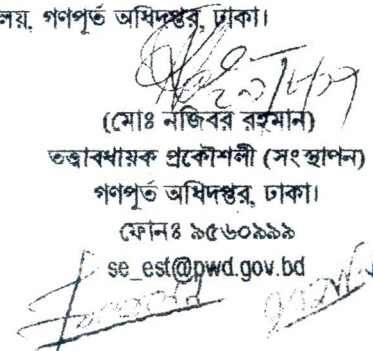 লয়, গণপূর্ত অধিদপ্তর, ঢাকা।
(মোঃ নজিবর রহমান)
তত্ত্বাবধায়ক প্রকৌশলী (সংস্থাপন)
গণপূর্ত অধিদপ্তর, ঢাকা।
ফোনঃ ৯৫৬০৯৯৯
se_est@pwd.gov.bd